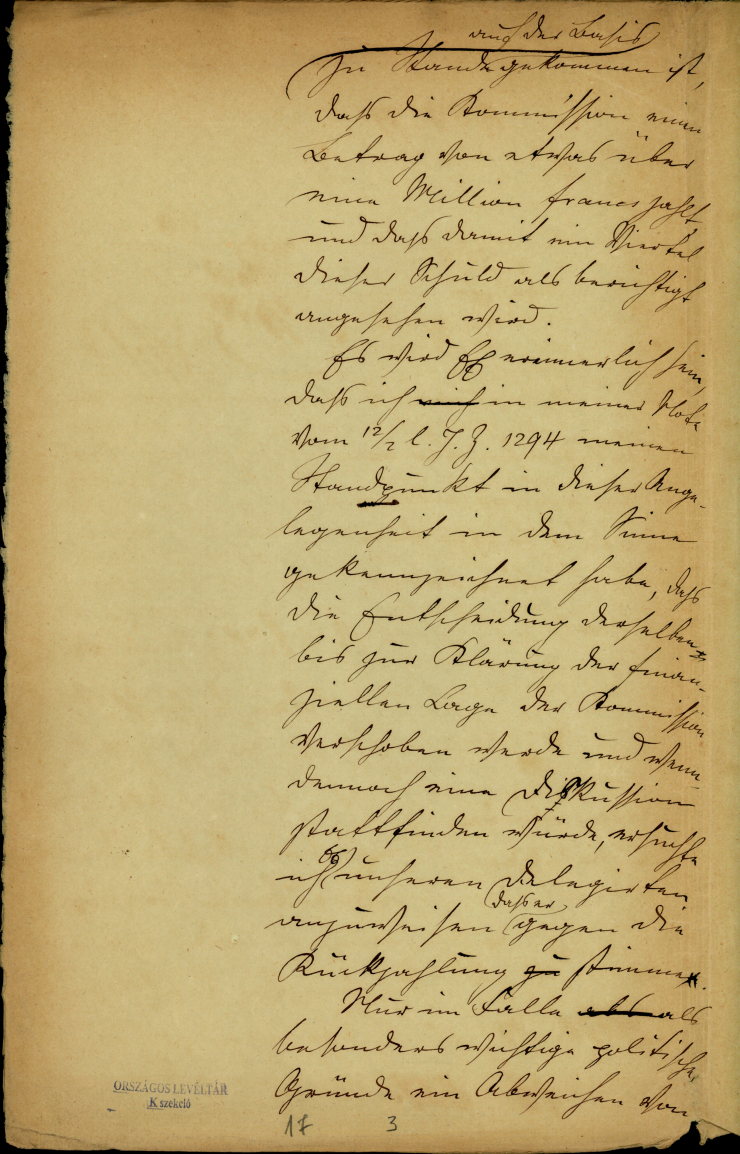 auf der Basis
zu Stande gekommen ist,
daß die Kommission einen
Betrag von etwas über
eine Million francs zahlt,
und daß damit ein Viertel
dieser Schuld als berichtigt
angesehen wird.
Es wird erinnerlich sein,
daß ich in meiner Note
vom 12/2 l. J. Z. 1294 meinen
Standpunkt in dieser Ange-
legenheit in dem Sinne
gekennzeichnet habe, daß
die Entscheidung derselben
bis zur Klärung der finan-
ziellen Lage der Kommission
verschoben werde und wenn
dennoch eine Diskussion
stattfinden würde, ersuchte
ich unseren Delegirten
daß er
anzuweisen gegen die
Rückzahlung zu stimme.
Nur im Falle als
besonders wichtige politische
Gründe ein Abweichen von
ORSZÁGOS LEVÉLTÁR
K szekció
17 3